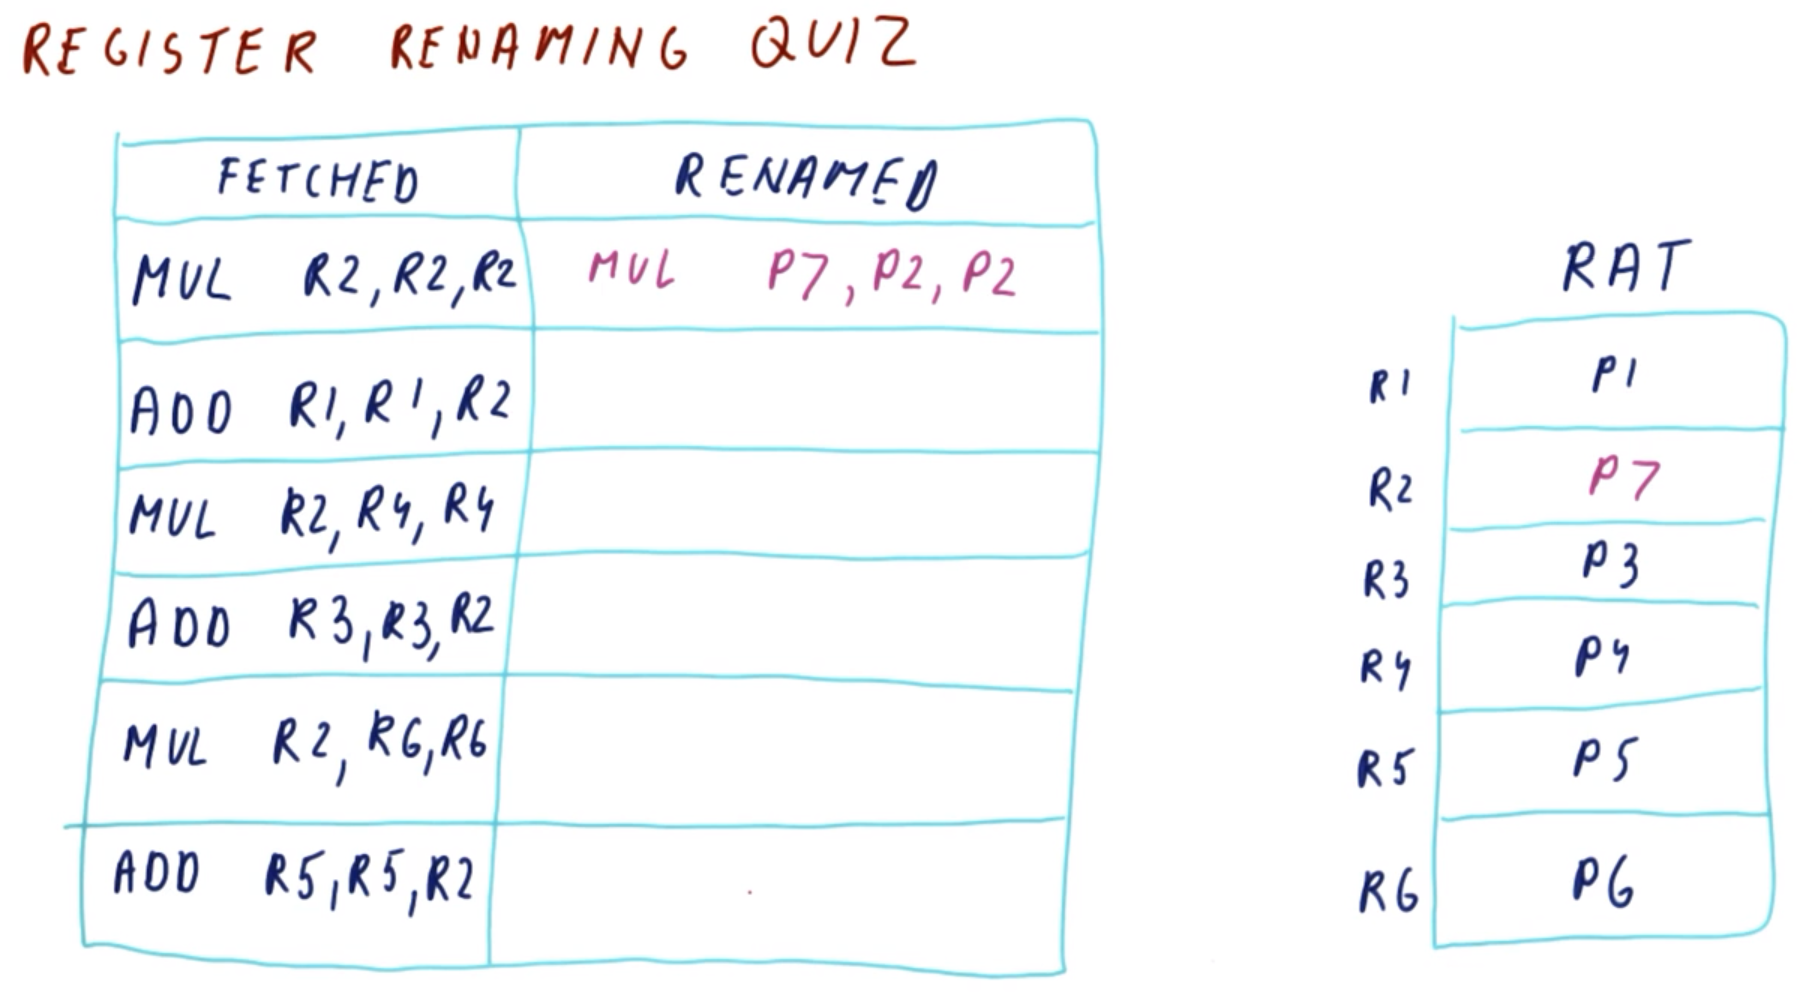 REGISTER RENAMING QUIZ
FETCHED RENAMED
MUL R2,R2,R2 MUL P7,P2,P2
ADD R1,R1,R2
MUL R2,R4,R4
ADD R3,R3,R2
MUL R2,R6,R6
ADD R5,R5,R2
RAT
R1 P1
R2 P7
R3 P3
R4 P4
R5 P5
R6 P6